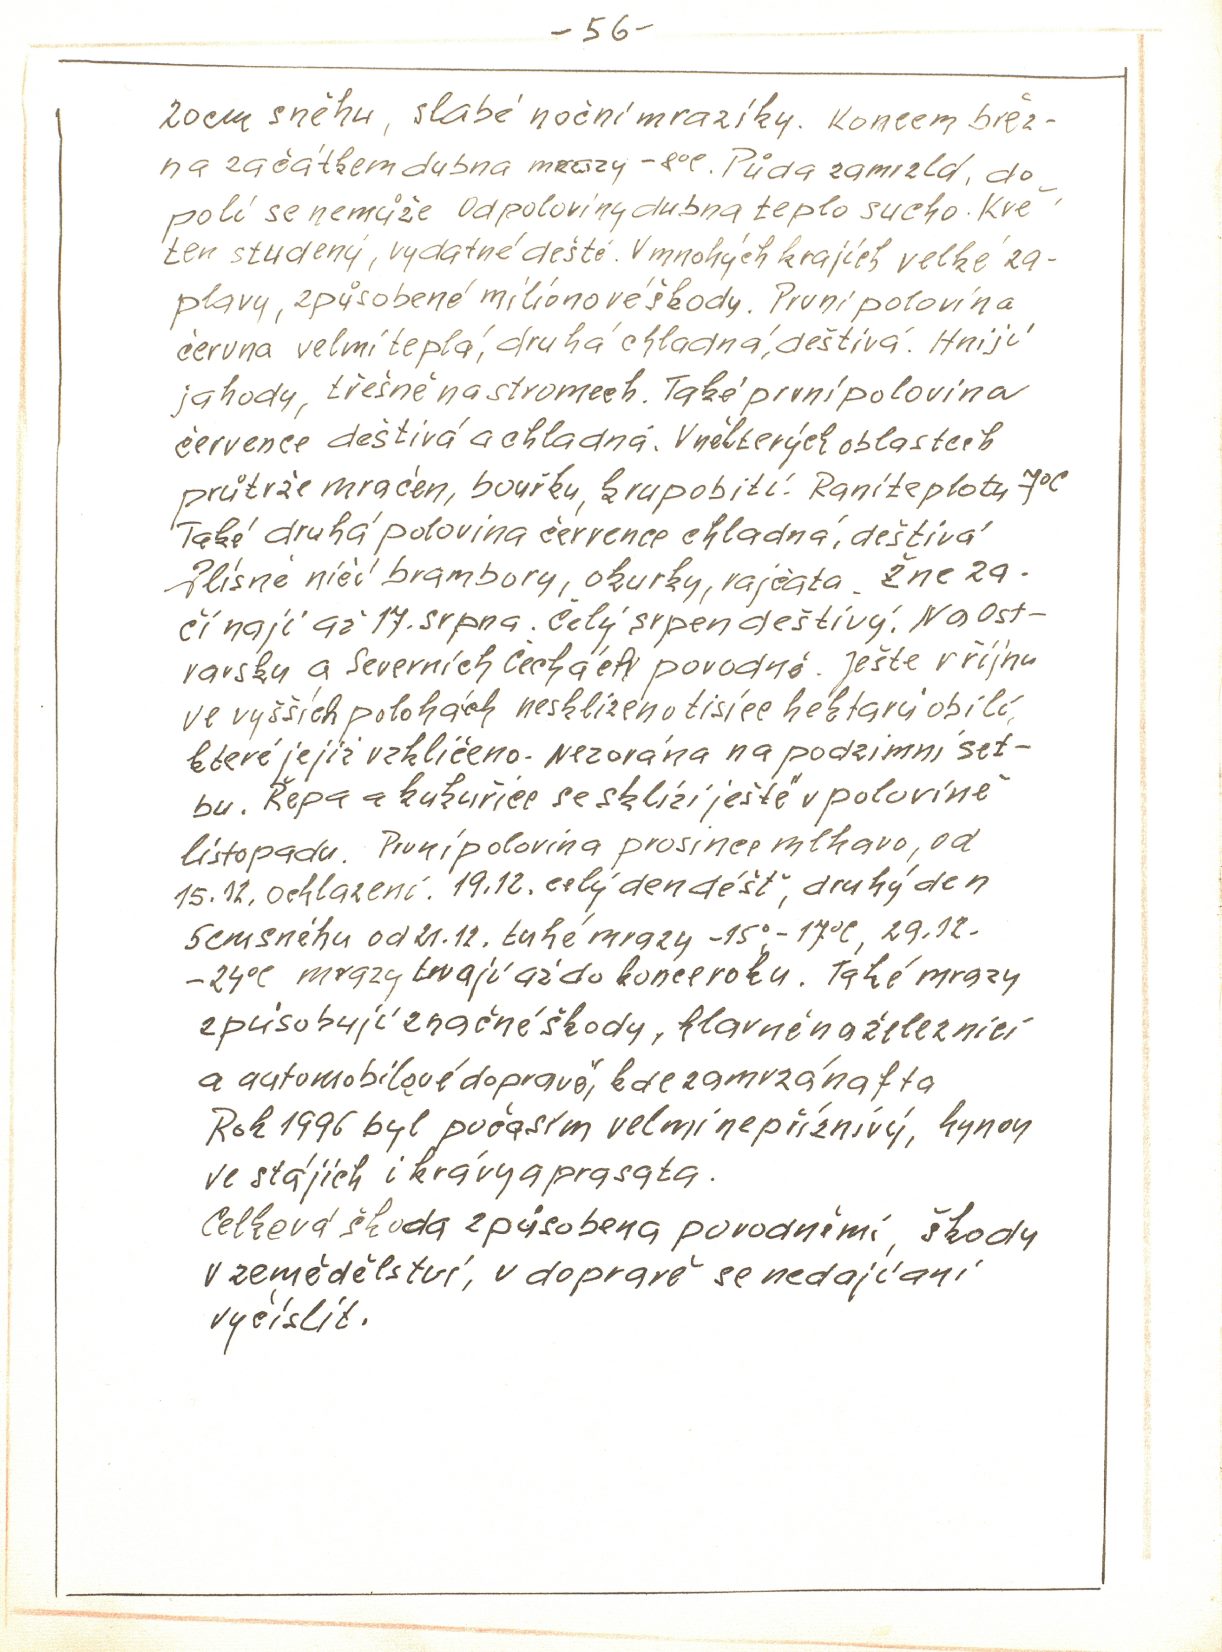 -56-
20cm sněhu, slabé noční mrazíky. Koncem břez-
na začátkem dubna mrazy -8°C. Půda zamrzlá, do
polí se nemůže Od poloviny dubna teplo sucho. Kvě-
ten studený, vydatné deště. V mnohých krajích velké zá-
plavy, způsobené miliónové škody. První polovina
června velmi teplá, druhá chladná, deštivá. Hnijí
jahody, třešně na stromech. Také první polovina
července deštivá a chladná. V některých oblastech
průtrže mračen, bouřky, krupobití. Raní teploty 7°C
Také druhá polovina července chladná, deštivá
Plísně ničí brambory, okurky, rajčata. Žne za-
čínají až 17. srpna. Celý srpen deštivý. Na Ost-
ravsku a Severních Čechách povodně. Ješte v říjnu
ve vyšších polohách nesklizeno tisíce hektarů obilí,
které je již vzklíčeno. Nezorána na podzimní set-
bu. Řepa a kukuřice se sklízí ještě v polovině
listopadu. První polovina prosince mlhavo, od
15.12. ochlazení. 19.12. celý den déšť, druhý den
5cm sněhu od 21.12. tuhé mrazy -15°, -17°C, 29.12.
-24°C mrazy trvají až do konce roku. Také mrazy
způsobují značné škody, hlavně na železnici
a automobilové dopravě, kde zamrzá nafta
Rok 1996 byl počasím velmi nepříznivý, hynou
ve stájích i krávy a prasata.
Celková škoda způsobena povodněmi, škody
v zemědělství, v dopravě se nedají ani
vyčíslit.